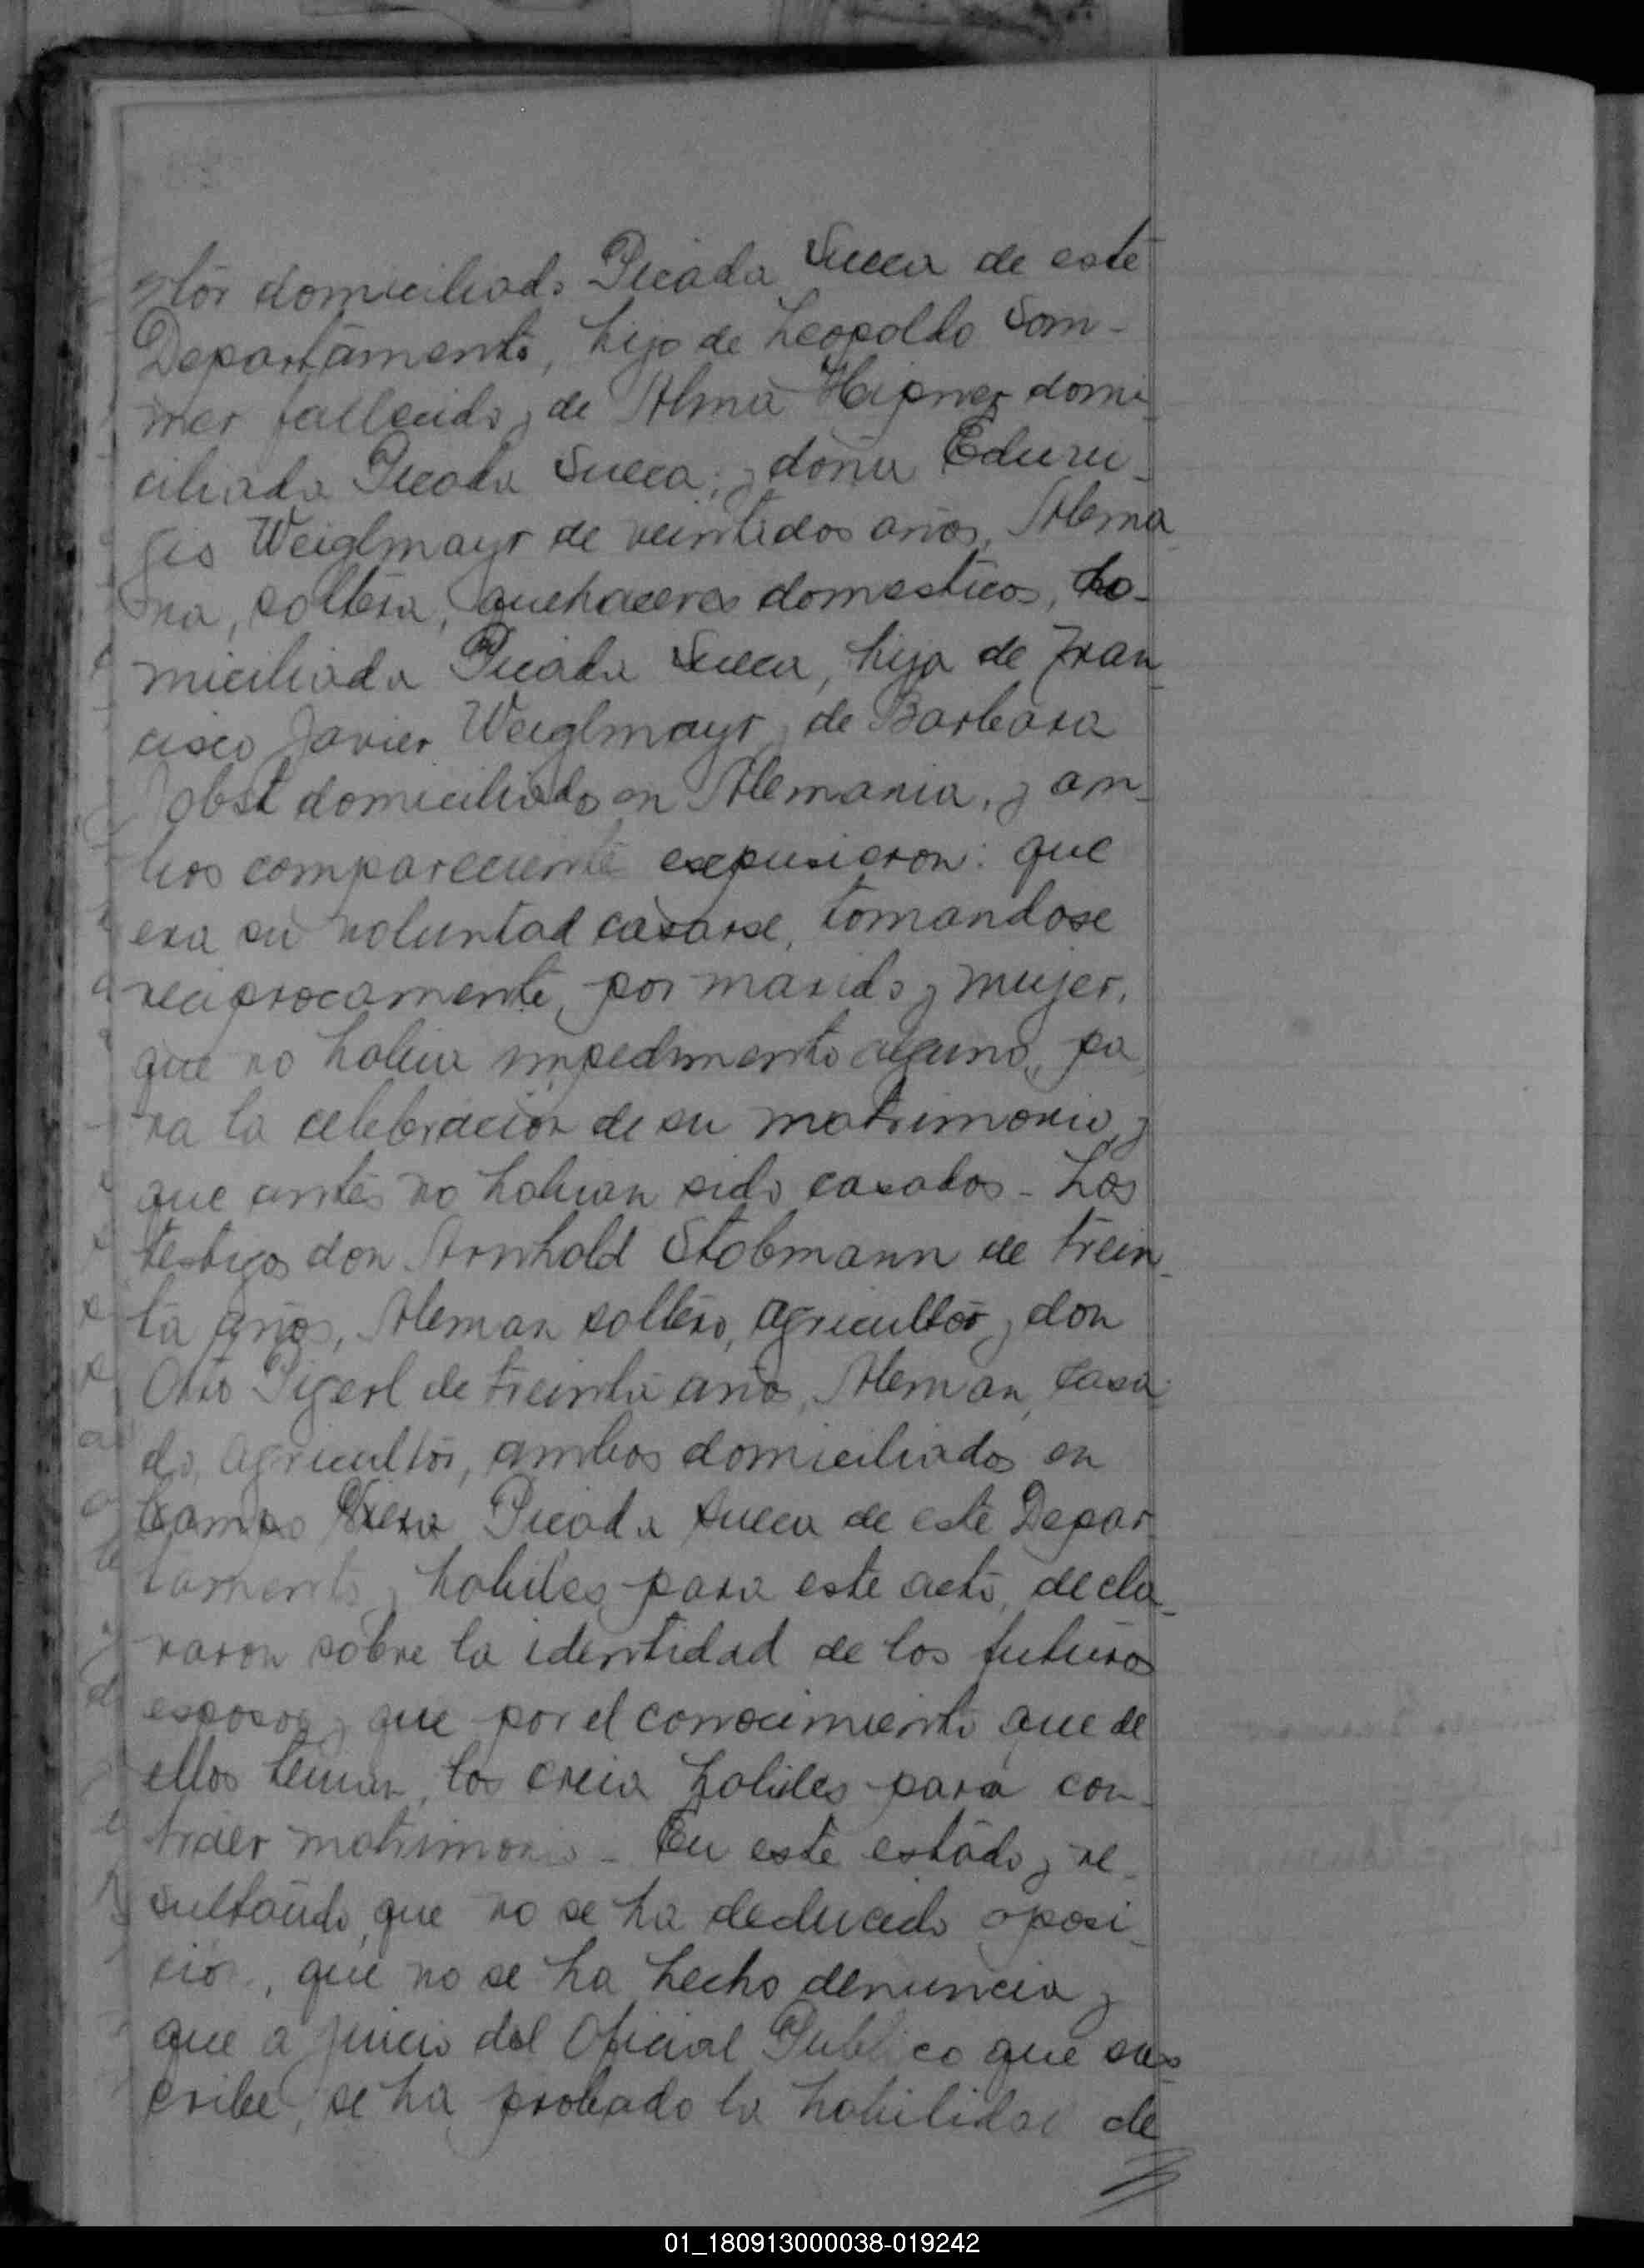 ltor domiciliado Picada Sueca de este
Departamento, hijo de Leopoldo Som-
mer fallecido y de Alma Hepner domi
ciliada Picada Sueca; y doña Eduvi-
gis Weiglmayr de veintidos años, Alema
na, soltera, quehaceres domesticos, do-
miciliada Picada Sueca, hija de Fran
cisco Javier Weiglmayr y de Barbara
Jobst domiciliados en Alemania, y am-
bos compareciente expusieron: que
era su voluntad casarse, tomandose
reciprocamente, por marido y mujer,
que no habia impedimento alguno, pa
ra la celebracion de su matrimonio, y
que antes no habian sido casados - Los
testigos don Arnhold Stobmann de trein-
ta años, Aleman soltero, agricultor y don
Otto Pigerl de treinta años, Aleman, casa-
do, agricultor, ambos domiciliados en
Campo Viera Picada Sueca de este Depar
tamento y habiles para este acto, decla-
raron sobre la identidad de los futuros
esposos y que por el conocimiento que de
ellos tenian, los creia habiles para con-
traer matrimonio - En este estado y re-
sultando, que no se ha deducido oposi-
cion, que no se ha hecho denuncia y
que a juicio del Oficial Publico que sus
cribe, se ha probado la habilidad de
01_180913000038-019242